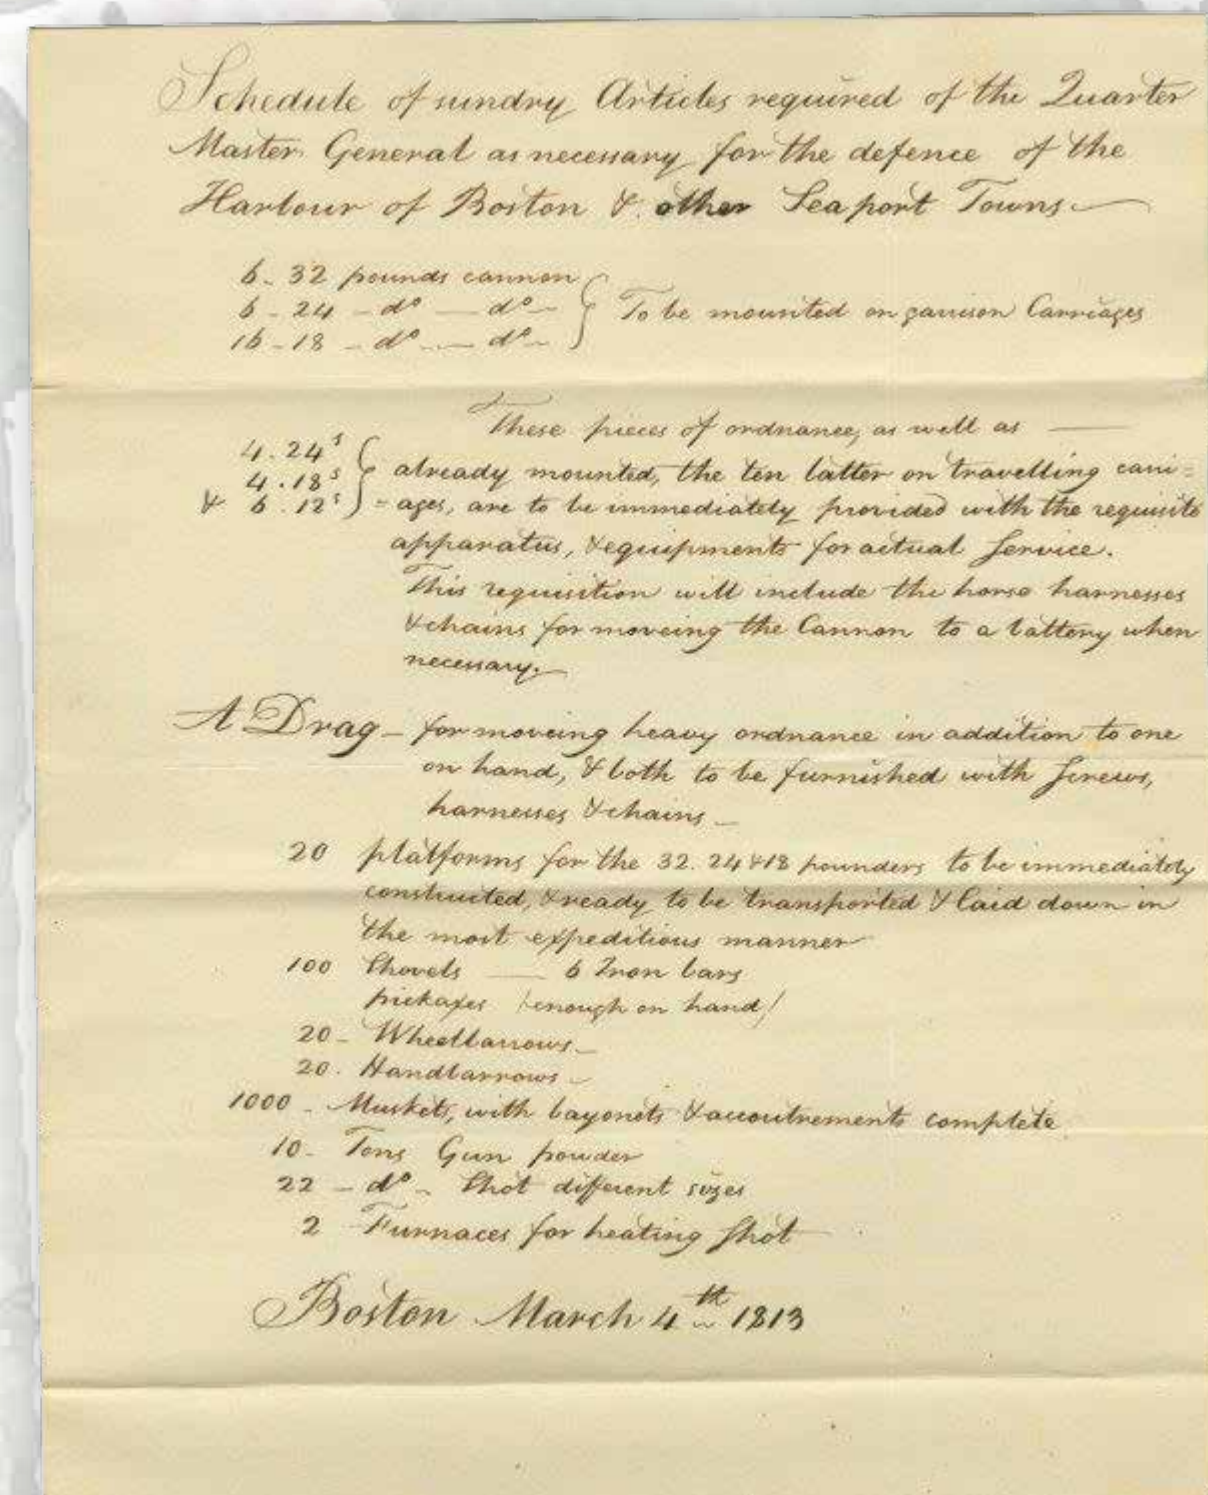 Schedule of sundry Articles required of the Quarter
Master General as necessary for the defence of the
Harbour of Boston & other Seaport Towns
6 - 32 pounds cannon
6 - 24 - do — do -
16 - 18 - do — do -
To be mounted on garrison Carriages
These pieces of ordnance, as well as —
4. 24s
4. 18s
& 6. 12s
already mounted, the ten latter on travelling carri=
=ages, are to be immediately provided with the requisite
apparatus, & equipments for actual Service.
This requisition will include the horse harnesses
& chains for moveing the Cannon to a battery when
necessary.
A Drag - for moveing heavy ordnance in addition to one
on hand, & both to be furnished with Screws,
harnesses & chains -
20 platforms for the 32. 24 & 18 pounders to be immediately
constructed, & ready to be transported & laid down in
the most expeditious manner
100 Shovels — 6 Iron bars
pickaxes (enough on hand)
20 - Wheelbarrows -
20. Handbarrows -
1000 - Muskets, with bayonets & accoutrements complete
10 - Tons Gun powder
22 - do - Shot different sizes
2 Furnaces for heating Shot
Boston March 4th 1813